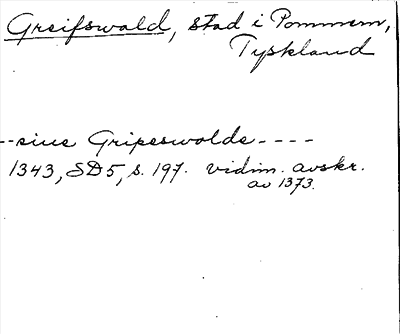 Greifswald, stad i Pommern,
Tyskland
--siue Gripeswolde----
1343, SD5, s. 197. vidim. avskr.
av 1373.